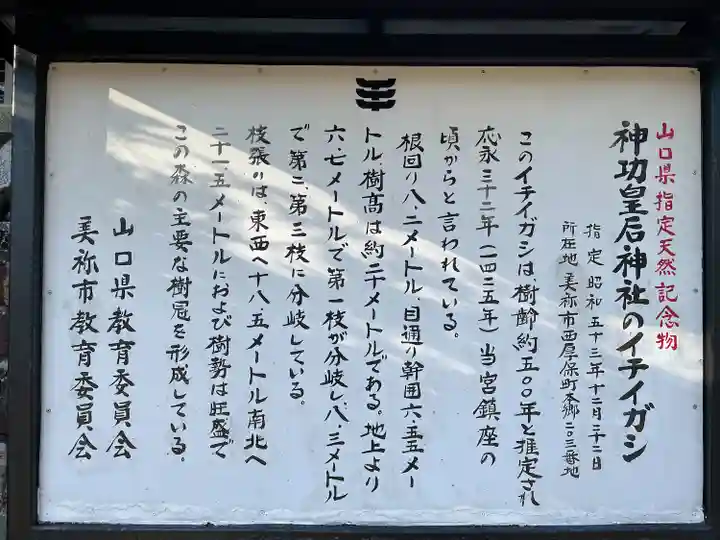 山口県指定天然記念物
神功皇后神社のイチイガシ
指定 昭和五十三年十二月二十二日
所在地 美祢市西厚保町本郷二〇三番地
このイチイガシは樹齢約五〇〇年と推定され
応永三十二年(一四二五年)当宮鎮座の
頃からと言われている。
根回り八、二メートル、目通り幹囲六、五五メー
トル、樹高は約二十メートルである。地上より
六、七メートルで第一枝が分岐し、八、三メートル
で第二、第三枝に分岐している。
枝張りは、東西へ十八、五メートル南北へ
二十一、五メートルにおよび樹勢は旺盛で
この森の主要な樹冠を形成している。
山口県教育委員会
美祢市教育委員会